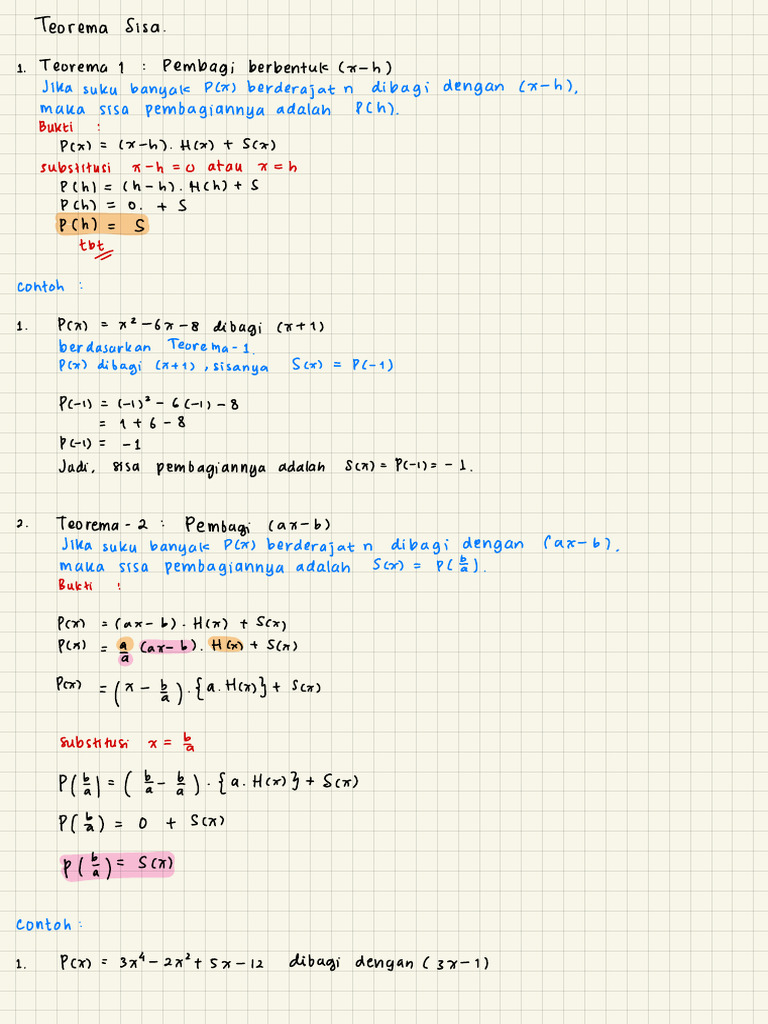 Teorema Sisa.
1. Teorema 1 : Pembagi berbentuk (x-h)
Jika suku banyak P(x) berderajat n dibagi dengan (x-h),
maka sisa pembagiannya adalah P(h).
Bukti :
P(x) = (x-h). H(x) + S(x)
substitusi x-h = 0 atau x = h
P(h) = (h-h). H(h) + S
P(h) = 0. + S
P(h) = S
tbt
contoh :
1. P(x) = x² - 6x - 8 dibagi (x+1)
berdasarkan Teorema-1.
P(x) dibagi (x+1), sisanya S(x) = P(-1)
P(-1) = (-1)² - 6(-1) - 8
= 1 + 6 - 8
P(-1) = -1
Jadi, sisa pembagiannya adalah S(x) = P(-1) = - 1.
2. Teorema - 2 : Pembagi (ax-b)
Jika suku banyak P(x) berderajat n dibagi dengan (ax-b),
maka sisa pembagiannya adalah S(x) = P(b/a).
Bukti :
P(x) = (ax-b). H(x) + S(x)
P(x) = a/a (ax-b). H(x) + S(x)
P(x) = (x - b/a). {a. H(x)} + S(x)
substitusi x = b/a
P(b/a) = (b/a - b/a). {a. H(x)} + S(x)
P(b/a) = 0 + S(x)
P(b/a) = S(x)
Contoh :
1. P(x) = 3x⁴ - 2x² + 5x - 12 dibagi dengan (3x-1)